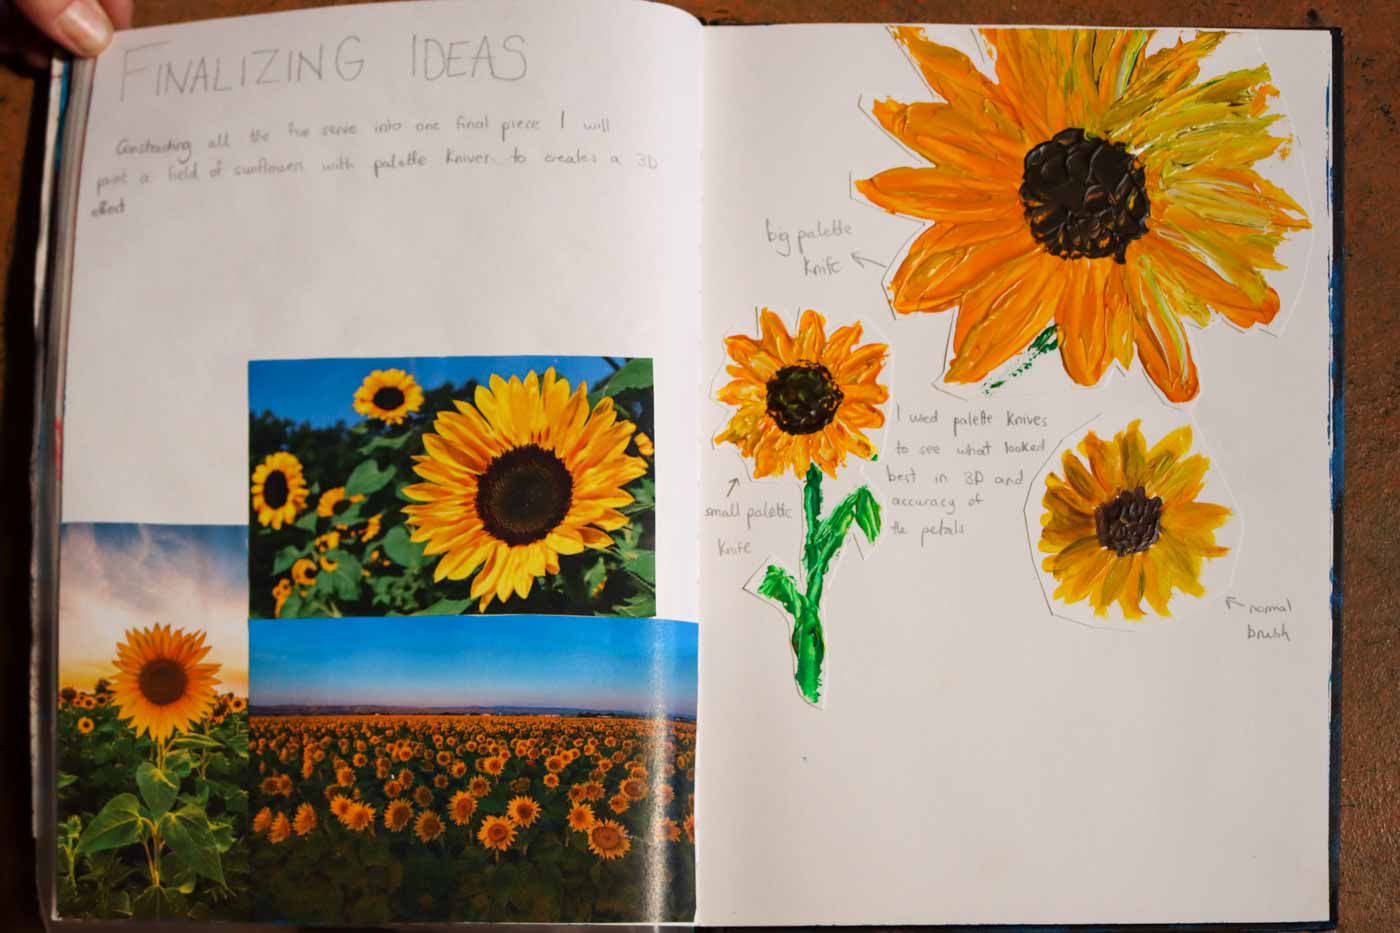 FINALIZING IDEAS
all the five sense into one final piece I will
paint a field of sunflowers with palette knives to creates a 3D
effect
big palette
knife
I used palette knives
to see what looked
best in 3D and
accuracy of
the petals
small palette
knife
normal
brush